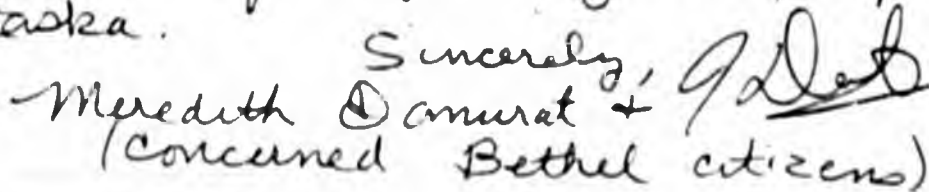 aska.
Sincerely,
Meredith Damurat +
(Concerned Bethel citizens)